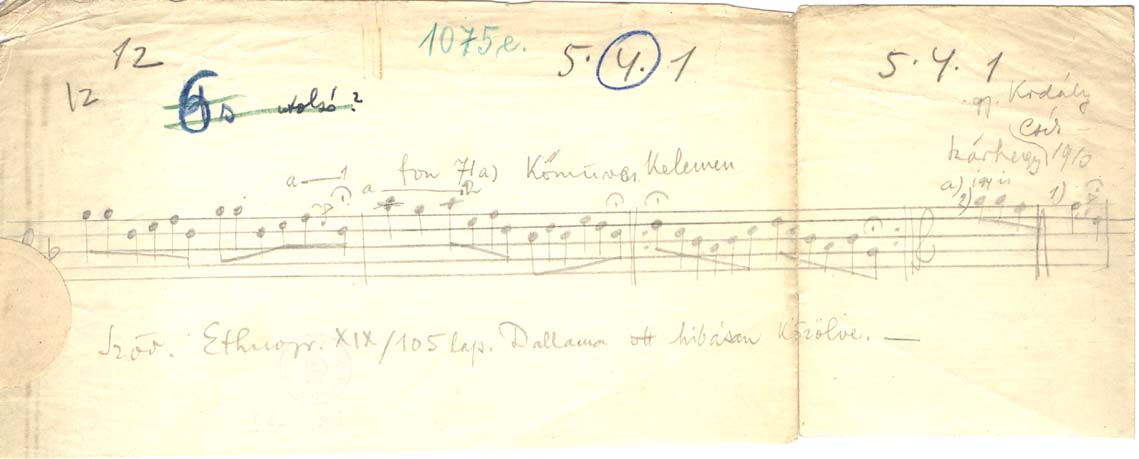 12
1075e.
5. 4. 1
5. 4. 1
12
utolsó?
gy. Kodály
Csík
Szárhegy 1910
fon 71a) Kőmüves Kelemen
a — 1
a
a) így is
2)
1)
Szöv. Ethnogr. XIX/105 lap. Dallama ott hibásan közölve. —